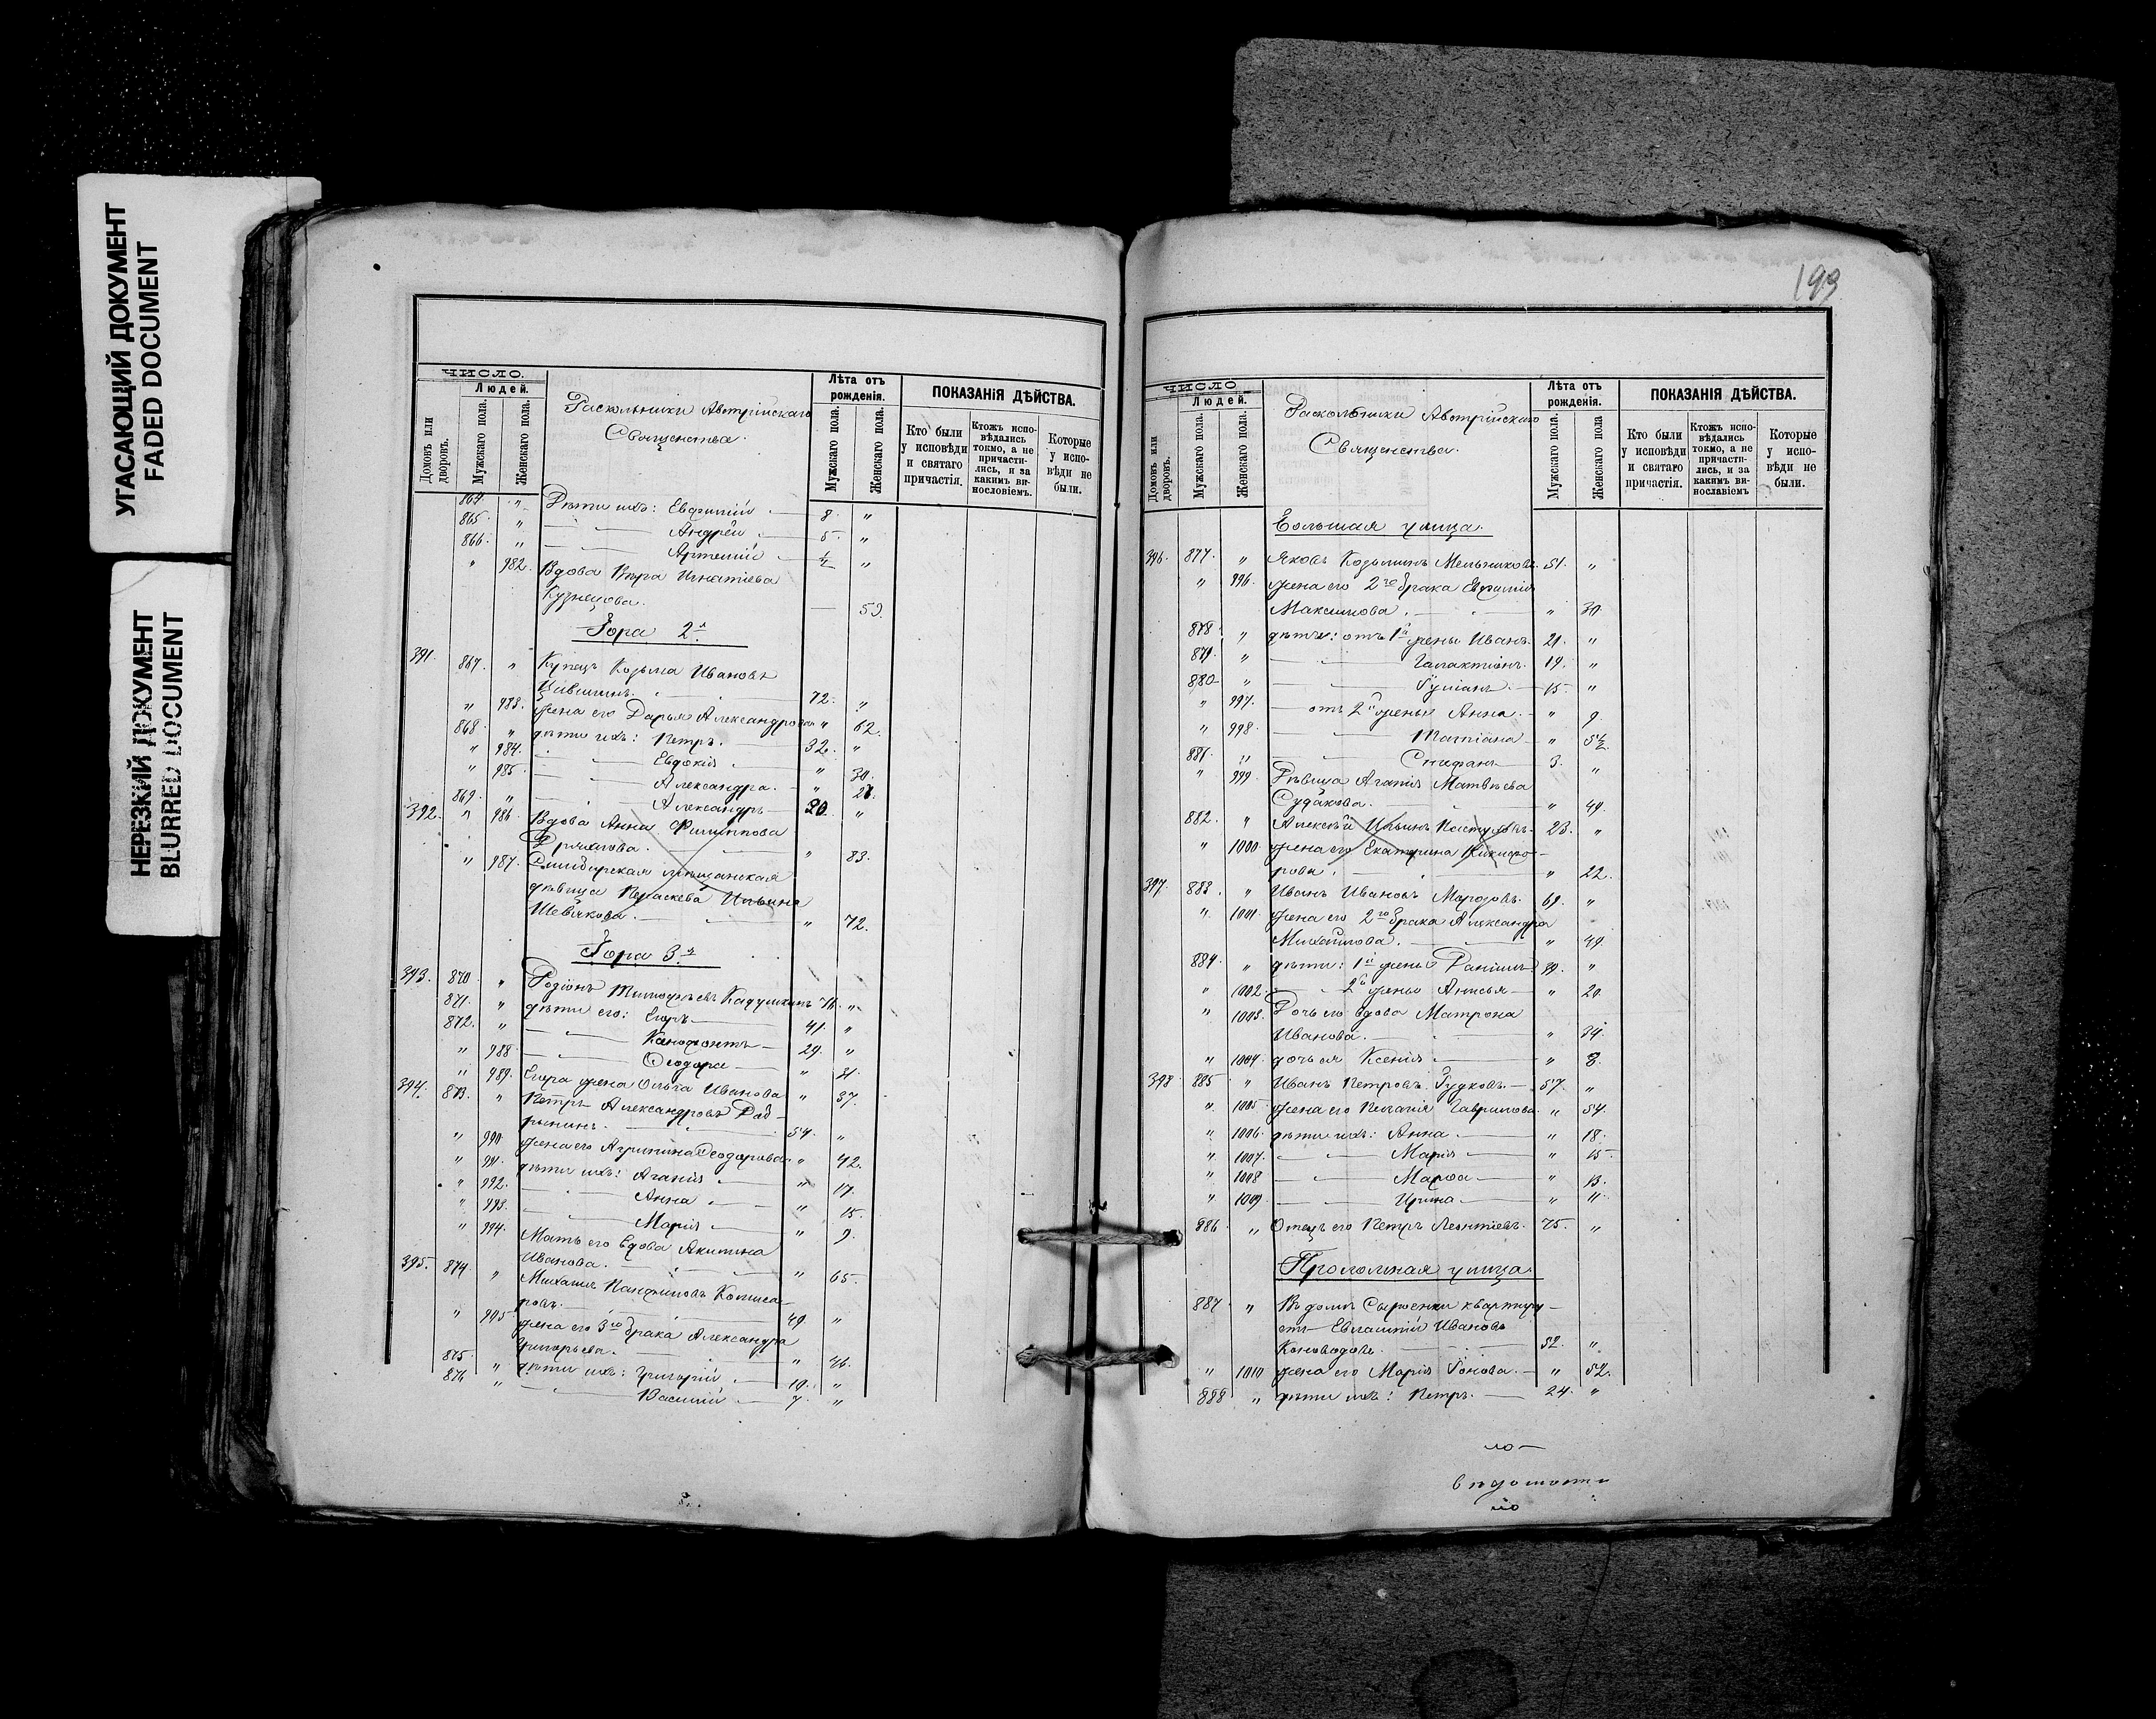 УГАСАЮЩИЙ ДОКУМЕНТ
FADED DOCUMENT
НЕРЕЗКИЙ ДОКУМЕНТ
BLURRED DOCUMENT
ЧИСЛО.
Людей.
Домовъ или дворовъ.
Мужскаго пола.
Женскаго пола.
Раскольники Австрійскаго
Священства.
Лѣта отъ рожденія.
Мужскаго пола.
Женскаго пола.
ПОКАЗАНІЯ ДѢЙСТВА.
Кто были у исповѣди и святаго причастія.
Ктожъ испо-вѣдались токмо, а не причасти-лись, и за какимъ ви-нословіемъ.
Которые у испо-вѣди не были.
864. " Дѣти ихъ: Евфимій 8. "
865. " Андрей 5. "
866. " Артемій ½ "
" 982. Вдова Вѣра Игнатіева
Кузнецова.
Гора 2я
391. 867. " Купецъ Козьма Ивановъ
72. "
" 983. жена его Дарья Александрова " 62.
868. " дѣти ихъ: Петръ. 32. "
" 984. Евдокія " 30.
" 985. Александра. "
869. " Александръ 20. "
392. " 986. Вдова Анна Филиппова
" 83.
" 987. Симбирская мѣщанская
дѣвица Параскева Ильина
Шевякова. " 72.
Гора 3я
393. 870. " Родіонъ Тимофѣевъ
871. " дѣти его: Егоръ 41. "
872. " 29. "
" 988. Ѳеодора " 31.
" 989. Егора жена Ольга Иванова " 37.
394. 873. " Петръ Александровъ
54. "
" 990. жена его Агрипина Ѳеодорова " 42.
" 991. дѣти ихъ: Агапія " 17.
" 992. Анна " 15.
" 993. Марія " 9.
" 994. Мать его вдова Акилина
Иванова. " 65.
395. 874. " Михаилъ Панфиловъ Комиса-
ровъ. 49. "
" 995. жена его 3го брака Александра
Григорьева. " 46.
875. " дѣти ихъ: Григорій 10. "
876. " Василій 7. "
199
ЧИСЛО
Людей.
Домовъ или дворовъ.
Мужскаго пола.
Женскаго пола.
Раскольники Австрійскаго
Священства.
Лѣта отъ рожденія.
Мужскаго пола.
Женскаго пола
ПОКАЗАНІЯ ДѢЙСТВА.
Кто были у исповѣди и святаго причастія.
Ктожъ испо-вѣдались токмо, а не причасти-лись, и за какимъ ви-нославіемъ
Которые у испо-вѣди не были.
Большая улица.
396. 877. " Яковъ Козьминъ Мельниковъ. 51. "
" 996. жена его 2го брака Евфимія
Максимова. " 30
878. " дѣти: отъ 1й жены Иванъ. 21. "
879. " Галактіонъ. 19. "
880 " 15. "
" 997. отъ 2й жены Анна. " 9.
" 998. Татіана " 5½
881. " Стефанъ 3. "
" 999. Дѣвица Агапія Матвѣева
Судакова. " 49.
882. " Алексѣй Ильинъ Пастуховъ. 23. "
" 1000. жена его Екатерина Никифо-
рова. " 22.
397. 883. " Иванъ Ивановъ Морозовъ. 69. "
" 1001. жена его 2го брака Александра
Михайлова. " 49.
884. " дѣти: 1й жены Даніилъ "
" 1002. 2й жены Анисья " 20.
" 1003. Дочь его вдова Матрона
Иванова. " 34.
" 1004. дочь ея Ксенія " 8.
398. 885. " Иванъ Петровъ Гудковъ. 57. "
" 1005. жена его Пелагія Гаврилова " 54.
" 1006. дѣти ихъ: Анна. " 18.
" 1007. Марія " 15.
" 1008 Марѳа " 13.
" 1009 Ирина " 11.
886. " Отецъ его Петръ Леонтіевъ. 75. "
Проломная улица.
887. " Въ домѣ квартиру-
етъ Евлампій Ивановъ
Коноводовъ. 52. "
" 1010 жена его Марія " 52.
888. " дѣти ихъ: Петръ. 24. "
ведомости